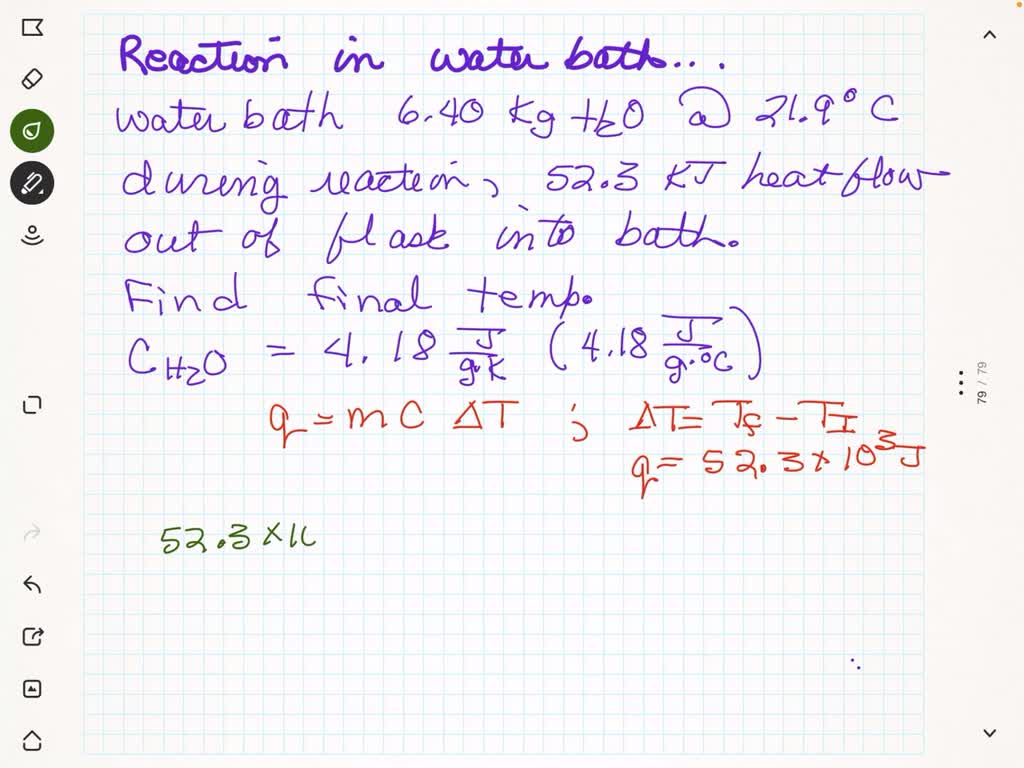 Reaction in water bath....
water bath 6.40 Kg H2O @ 21.9° C
during reaction, 52.3 KJ heat flow
out of flask into bath.
Find final temp.
C H2O = 4.18 J/g·K (4.18 J/g·°C)
q = m C ΔT ; ΔT = Tf - TI
q = 52.3 × 10³ J
52.3 × 1(
79 / 79